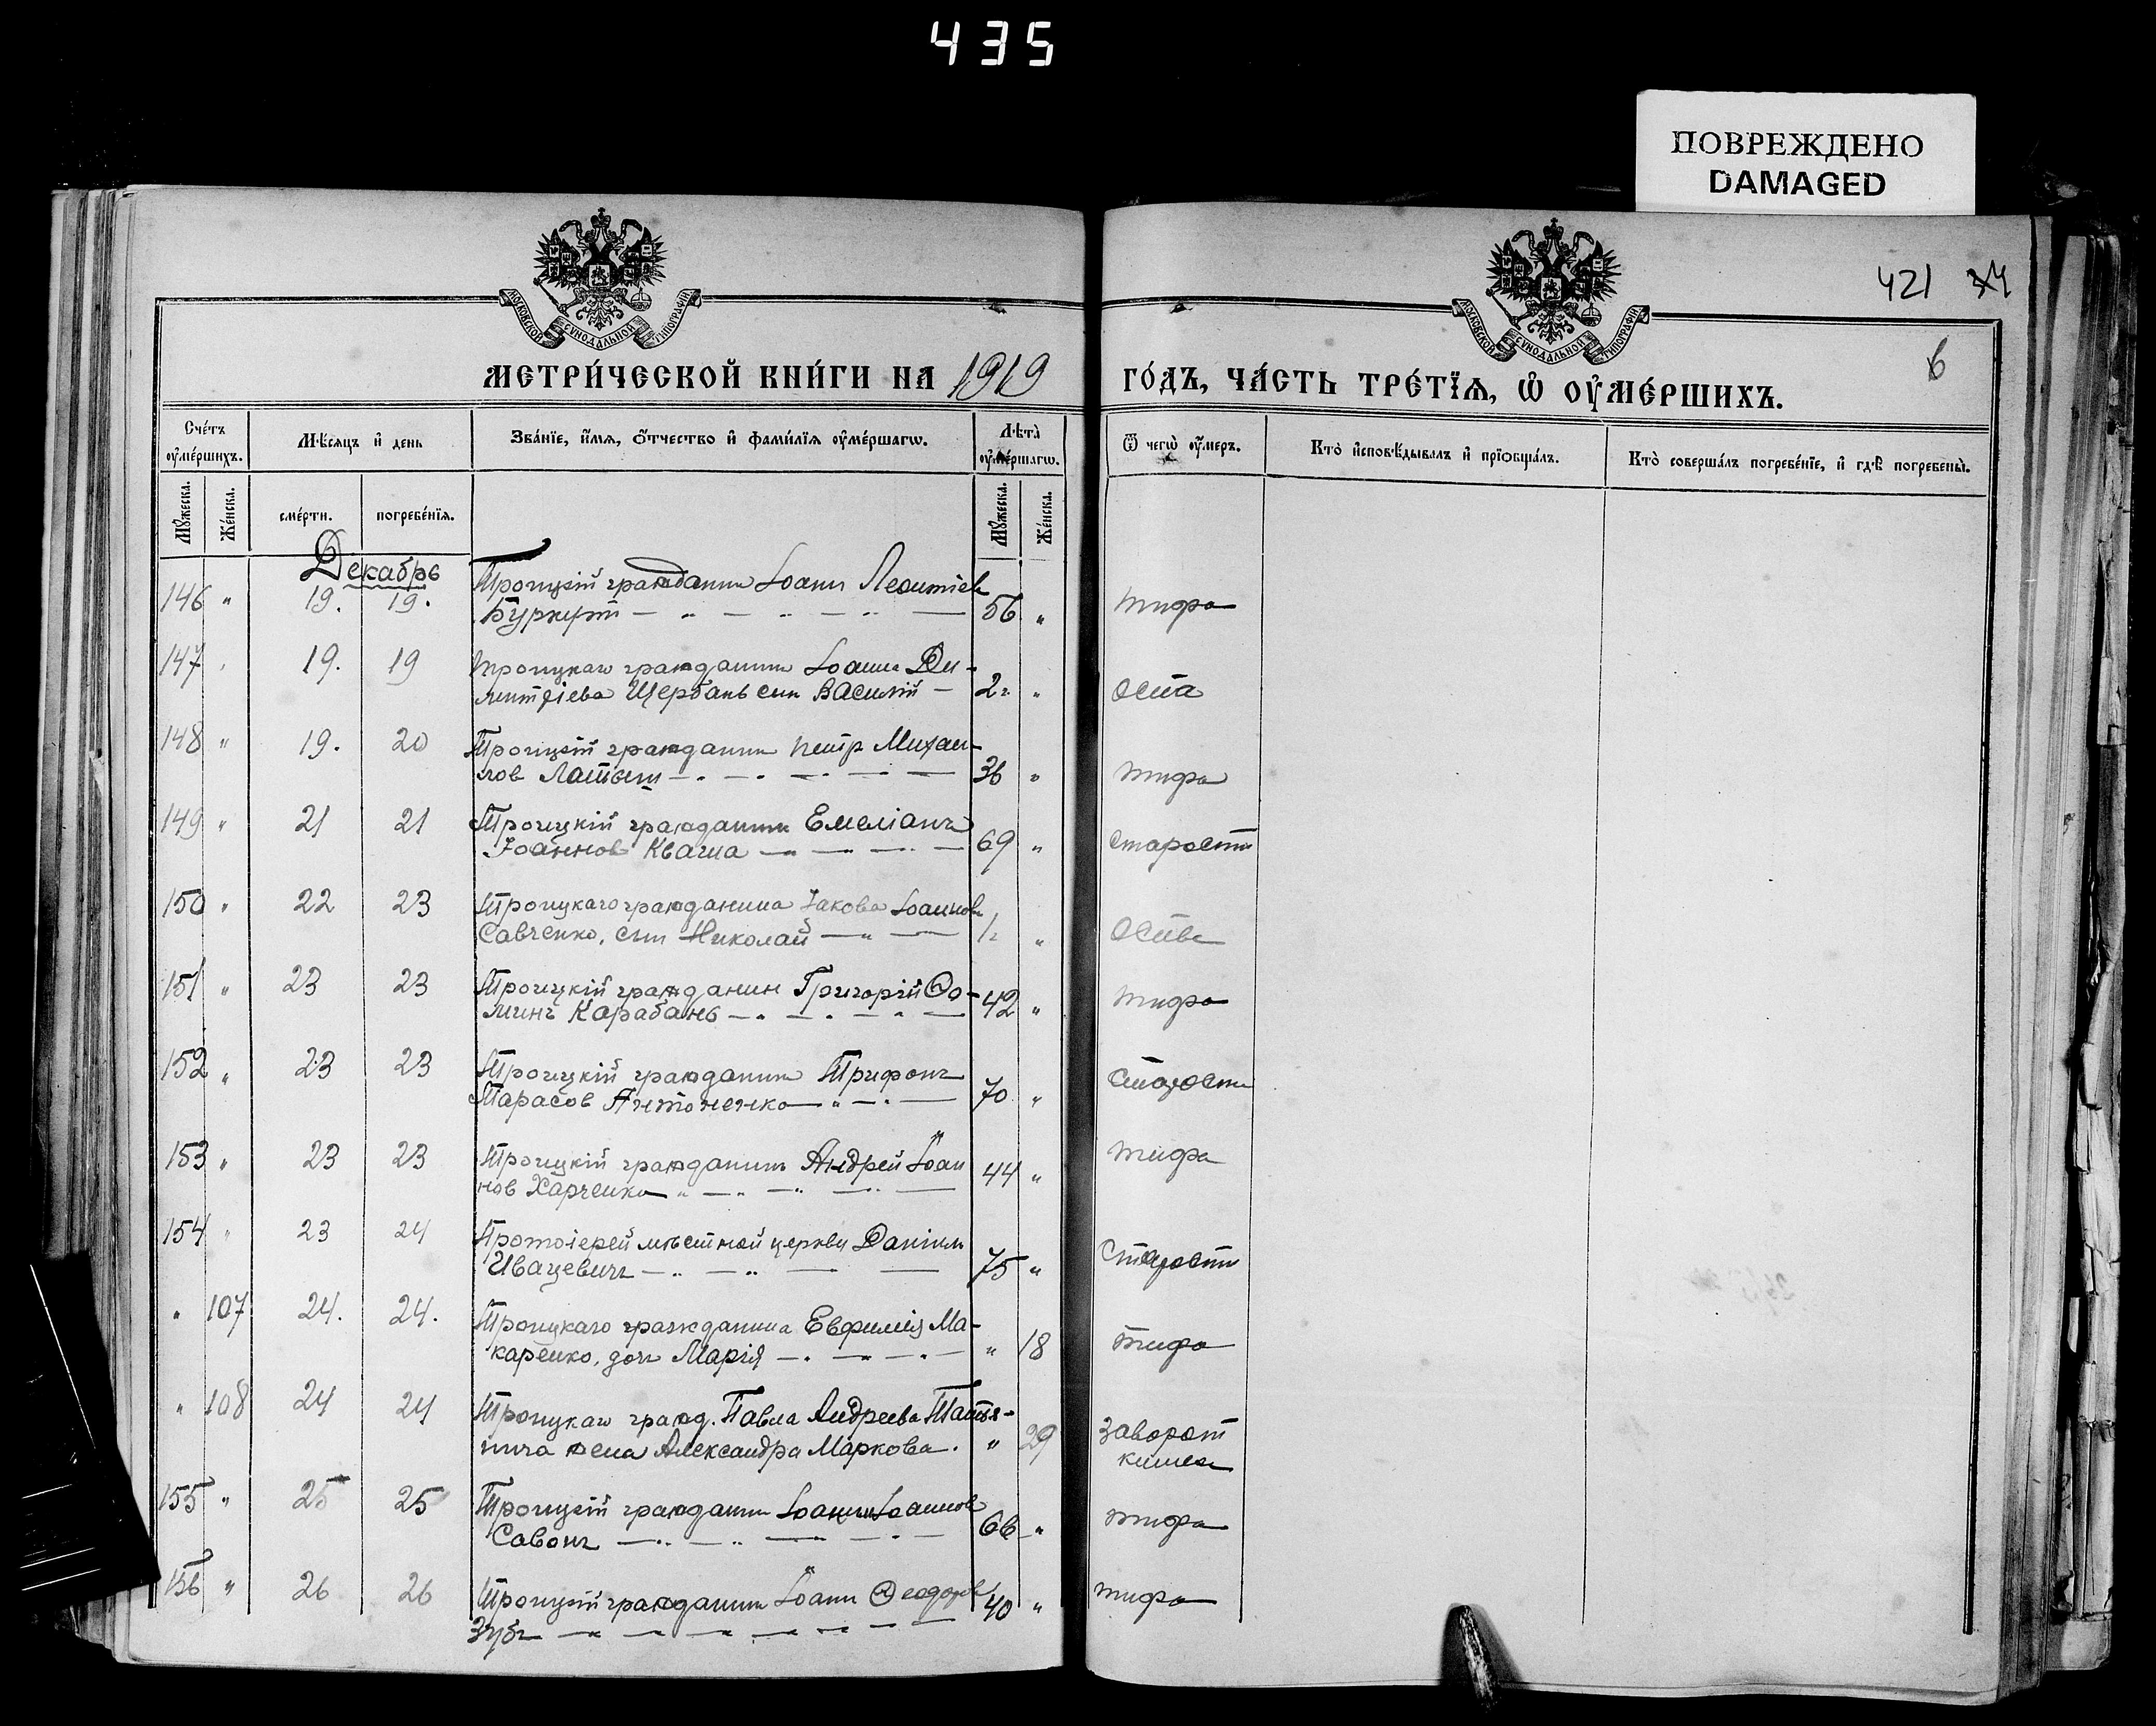 435
ПОВРЕЖДЕНО
DAMAGED
МОСКОВСКОЙ СѴНОДАЛЬНОЙ ТИПОГРАФІИ
МОСКОВСКОЙ СѴНОДАЛЬНОЙ ТИПОГРАФІИ
421
6
МЕТРИ́ЧЕСКОЙ КНИ́ГИ НА 1919 ГО́ДЪ, ЧА́СТЬ ТРЕ́ТЇѦ, Ѡ҆ ОУ҆МЕ́РШИХЪ.
Сче́тъ оу҆ме́ршихъ.
Мѣ́сѧцъ и҆ день
Зва́нїе, и҆́мѧ, ѻ҆́тчество и҆ фами́лїѧ оу҆ме́ршагѡ.
Лѣ̑та̀ оу҆ме́ршагѡ.
Ѿ чегѡ̀ оу҆́меръ.
Кто̀ и҆сповѣ́дывалъ и҆ прїѡбща́лъ.
Кто̀ соверша́лъ погребе́нїе, и҆ гдѣ̀ погребены̀.
Мꙋ́жеска. Же́нска. сме́рти. погребе́нїѧ. Мꙋ́жеска. Же́нска.
Декабрь
146 " 19. 19. Троицкій гражданин Іоанн Леонтіев
Буркут — " — " — " — 56 " тифа
147 " 19. 19 Троицкаго гражданина Іоанна Ди-
митріева Щербань сын Василій — 2 г " оспа
148 " 19. 20 Троицкій гражданин Петр Михаи-
лов Латыш — " — " — " — 36 " тифа
149 " 21 21 Троицкій гражданин Емеліанъ
Іоаннов Кваша — " — " — " — 69 " старости
150 " 22 23 Троицкаго гражданина Іакова Іоаннова
Савченко, сын Николай — " — ½ " оспы
151 " 23 23 Троицкій гражданин Григорій Ѳо-
минъ Карабань — " — " — " — 42 " тифа
152 " 23 23 Троицкій гражданин Трифонъ
Тарасов Антоненко — " — " — 70 " старости
153 " 23 23 Троицкій гражданин Андрей Іоан
нов Харченко " — " — " — " — 44 " тифа
154 " 23 24 Протоіерей мѣстной церкви Даніил
Ивацевичъ — " — " — — 75 " старости
" 107 24. 24. Троицкаго гражданина Евфимія Ма-
каренко, дочь Марія — " — " — " — " 18 тифа
" 108 24 24 Троицкаго гражд. Павла Андреева
жена Александра Маркова. " 29 заворот
кишек
155 " 25 25 Троицкій гражданин Іоанн Іоаннов
Савонъ — " — " — " — 66 " тифа
156 " 26 26 Троицкій гражданин Іоанн Ѳеодоров
Зубъ — " — " — " — " — " — 40 " тифа